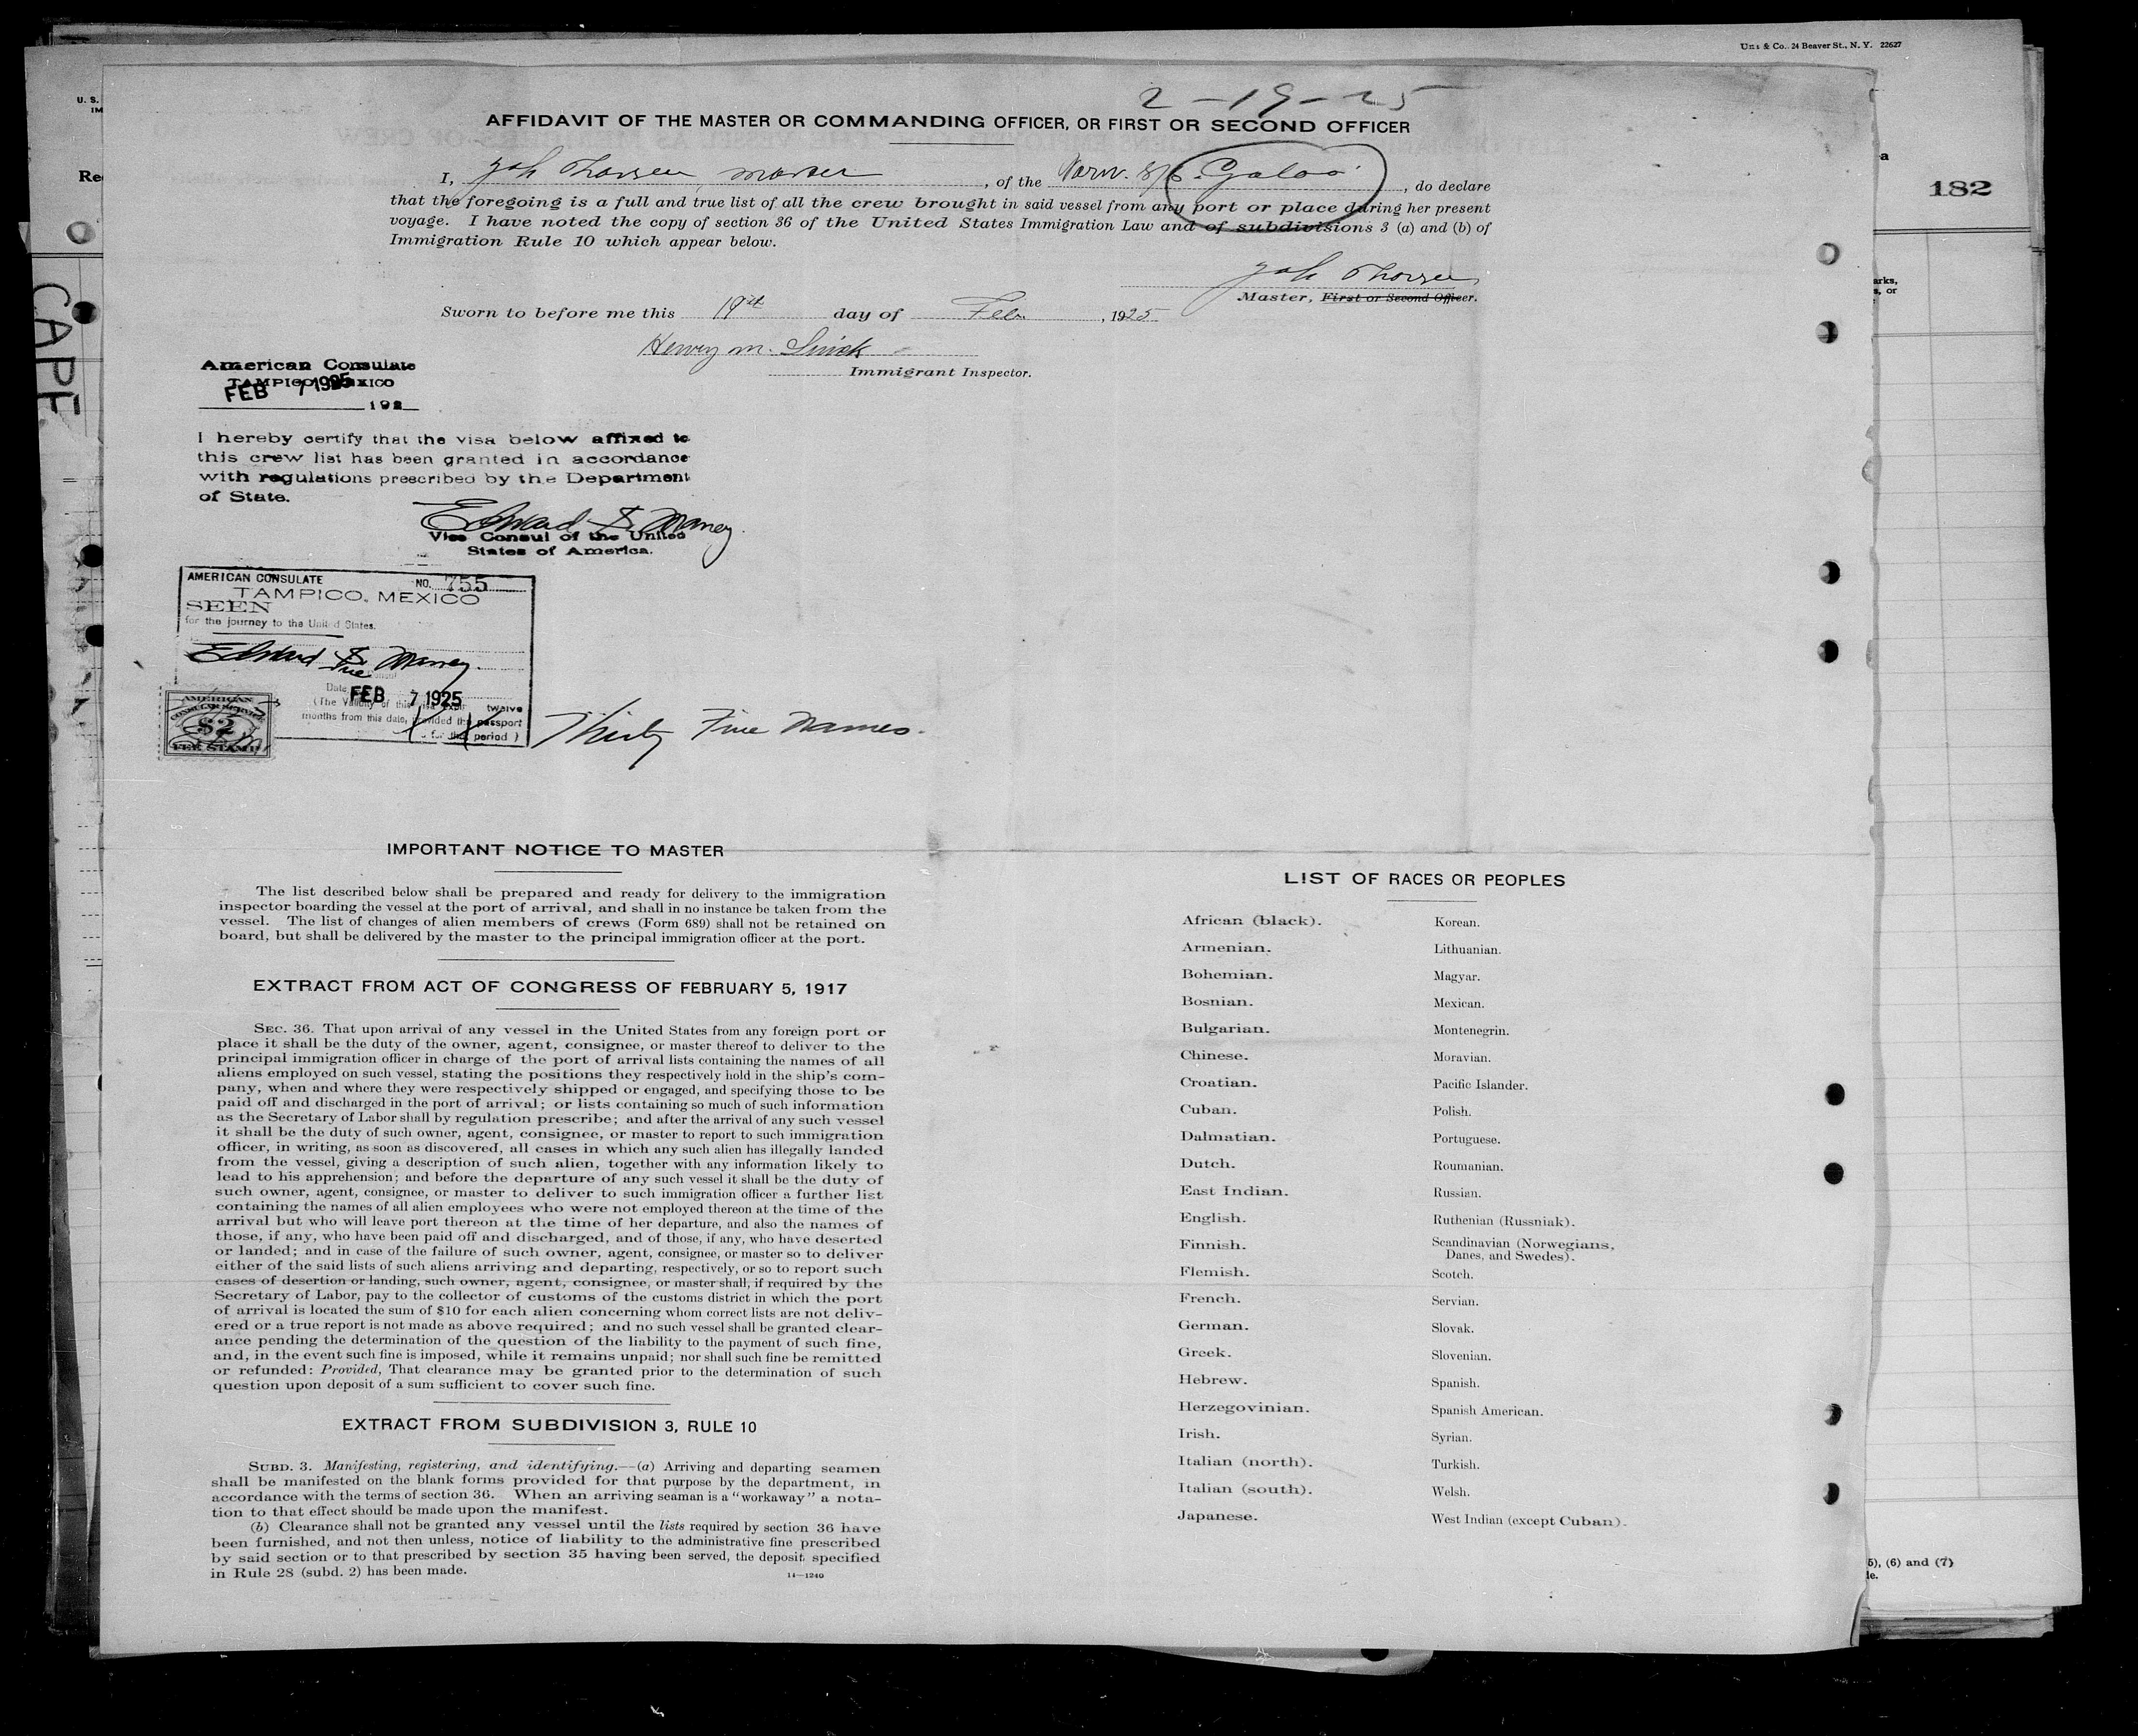 Uns & Co., 24 Beaver St., N. Y. 22627
U. S.
IM
Re
CAPE
a
182
arks,
s, or
2-19-25
AFFIDAVIT OF THE MASTER OR COMMANDING OFFICER, OR FIRST OR SECOND OFFICER
I, Joh Thorsen, master, of the Norw. S/S. Galoo, do declare
that the foregoing is a full and true list of all the crew brought in said vessel from any port or place during her present
voyage. I have noted the copy of section 36 of the United States Immigration Law and of subdivisions 3 (a) and (b) of
Immigration Rule 10 which appear below.
Joh Thorsen
Master, First or Second Officer.
Sworn to before me this 19th day of Feb., 1925
Henry M.
Immigrant Inspector.
American Consulate
TAMPICO, MEXICO
FEB 7 1925
192
I hereby certify that the visa below affixed to
this crew list has been granted in accordance
with regulations prescribed by the Department
of State.
Edward S. Maney.
Vice Consul of the United
States of America.
AMERICAN CONSULATE NO. 755
TAMPICO, MEXICO
SEEN
for the journey to the United States.
Edward S. Maney.
Vice Consul
Date FEB 7 1925
(The Validity of this visa expires twelve
months from this date, provided the passport
for that period)
AMERICAN
CONSULAR SERVICE
$2
FEE STAMP
Thirty Five Names.
IMPORTANT NOTICE TO MASTER
The list described below shall be prepared and ready for delivery to the immigration
inspector boarding the vessel at the port of arrival, and shall in no instance be taken from the
vessel. The list of changes of alien members of crews (Form 689) shall not be retained on
board, but shall be delivered by the master to the principal immigration officer at the port.
EXTRACT FROM ACT OF CONGRESS OF FEBRUARY 5, 1917
SEC. 36. That upon arrival of any vessel in the United States from any foreign port or
place it shall be the duty of the owner, agent, consignee, or master thereof to deliver to the
principal immigration officer in charge of the port of arrival lists containing the names of all
aliens employed on such vessel, stating the positions they respectively hold in the ship's com-
pany, when and where they were respectively shipped or engaged, and specifying those to be
paid off and discharged in the port of arrival; or lists containing so much of such information
as the Secretary of Labor shall by regulation prescribe; and after the arrival of any such vessel
it shall be the duty of such owner, agent, consignee, or master to report to such immigration
officer, in writing, as soon as discovered, all cases in which any such alien has illegally landed
from the vessel, giving a description of such alien, together with any information likely to
lead to his apprehension; and before the departure of any such vessel it shall be the duty of
such owner, agent, consignee, or master to deliver to such immigration officer a further list
containing the names of all alien employees who were not employed thereon at the time of the
arrival but who will leave port thereon at the time of her departure, and also the names of
those, if any, who have been paid off and discharged, and of those, if any, who have deserted
or landed; and in case of the failure of such owner, agent, consignee, or master so to deliver
either of the said lists of such aliens arriving and departing, respectively, or so to report such
cases of desertion or landing, such owner, agent, consignee, or master shall, if required by the
Secretary of Labor, pay to the collector of customs of the customs district in which the port
of arrival is located the sum of $10 for each alien concerning whom correct lists are not deliv-
ered or a true report is not made as above required; and no such vessel shall be granted clear-
ance pending the determination of the question of the liability to the payment of such fine,
and, in the event such fine is imposed, while it remains unpaid; nor shall such fine be remitted
or refunded: Provided, That clearance may be granted prior to the determination of such
question upon deposit of a sum sufficient to cover such fine.
EXTRACT FROM SUBDIVISION 3, RULE 10
SUBD. 3. Manifesting, registering, and identifying.—(a) Arriving and departing seamen
shall be manifested on the blank forms provided for that purpose by the department, in
accordance with the terms of section 36. When an arriving seaman is a "workaway" a nota-
tion to that effect should be made upon the manifest.
(b) Clearance shall not be granted any vessel until the lists required by section 36 have
been furnished, and not then unless, notice of liability to the administrative fine prescribed
by said section or to that prescribed by section 35 having been served, the deposit specified
in Rule 28 (subd. 2) has been made.
14—1240
LIST OF RACES OR PEOPLES
African (black).
Armenian.
Bohemian.
Bosnian.
Bulgarian.
Chinese.
Croatian.
Cuban.
Dalmatian.
Dutch.
East Indian.
English.
Finnish.
Flemish.
French.
German.
Greek.
Hebrew.
Herzegovinian.
Irish.
Italian (north).
Italian (south).
Japanese.
Korean.
Lithuanian.
Magyar.
Mexican.
Montenegrin.
Moravian.
Pacific Islander.
Polish.
Portuguese.
Roumanian.
Russian.
Ruthenian (Russniak).
Scandinavian (Norwegians,
Danes, and Swedes).
Scotch.
Servian.
Slovak.
Slovenian.
Spanish.
Spanish American.
Syrian.
Turkish.
Welsh.
West Indian (except Cuban).
5), (6) and (7)
le.